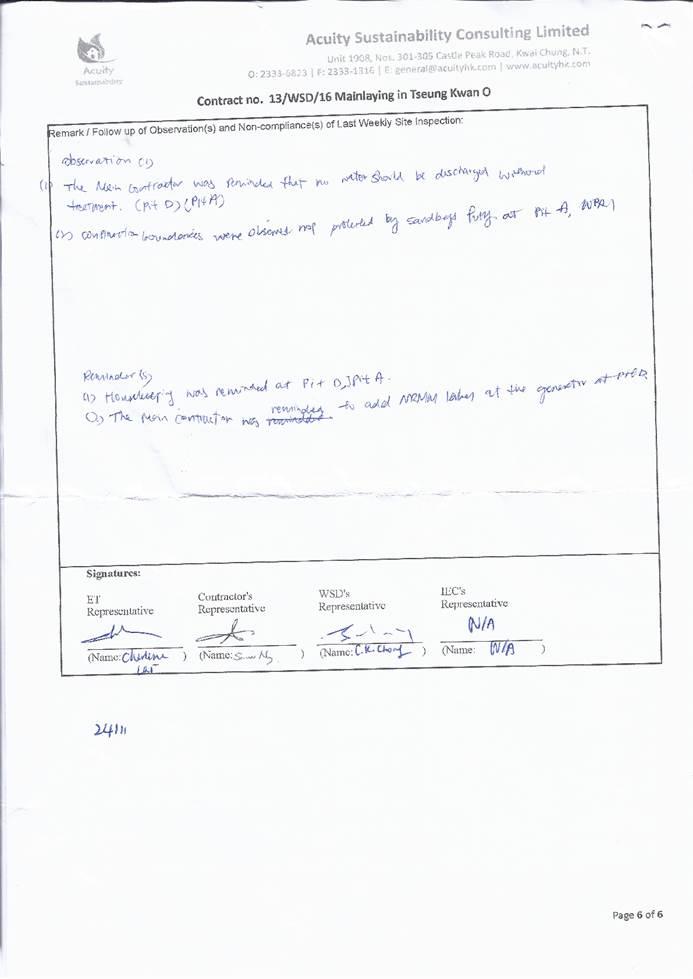 Acuity Sustainability Consulting Limited
Unit 1908, Nos. 301-305 Castle Peak Road, Kwai Chung, N.T.
O: 2333-6823 | F: 2333-1316 | E: general@acuityhk.com | www.acuityhk.com
Acuity
Sustainability
Contract no. 13/WSD/16 Mainlaying in Tseung Kwan O
Remark / Follow up of Observation(s) and Non-compliance(s) of Last Weekly Site Inspection:
Observation (1)
(1) The Main Contractor was reminded that no water should be discharged without
treatment. (Pit D) (Pit A)
(2) Construction boundaries were observed not protected by sandbags fully at Pit A, WPR1
Reminder(s)
(1) Housekeeping was reminded at Pit D, Pit A.
reminded
(2) The Main Contractor was reminded to add NRMM label at the generator at Pit D
Signatures:
ET
Representative
Contractor's
Representative
WSD's
Representative
IEC's
Representative
N/A
(Name: Cherlene Lai)
(Name: )
(Name: C.K. Chong)
(Name: N/A)
24/11
Page 6 of 6